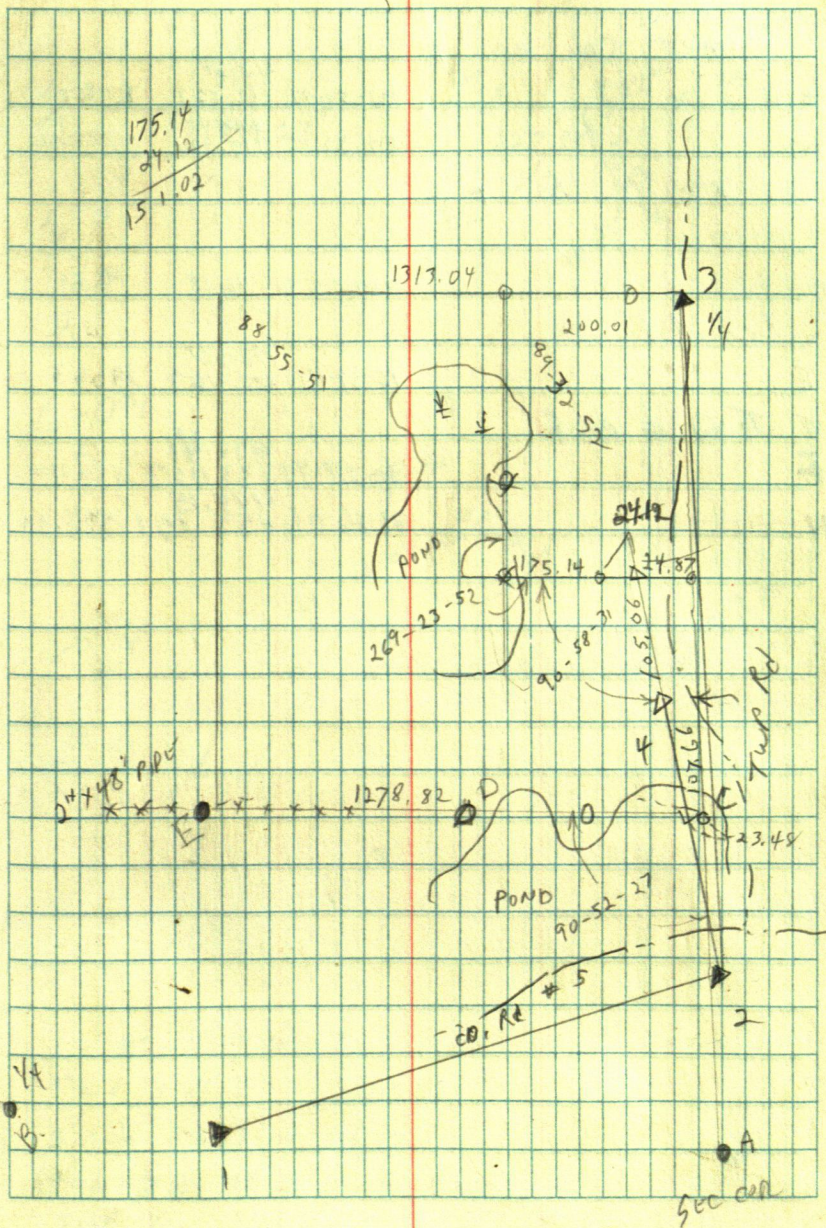 175.14
24.12
151.02
1313.04
3
200.01
1/4
88
55-51
89-32-52
24.12
POND
175.14
24.87
269-23-52
90-58-31
105.06
4
Twp Rd
2" x 48" PIPE
1278.82
D
E
23.48
POND
90-52-27
Co. Rd # 5
2
1/4
B
1
A
SEC COR